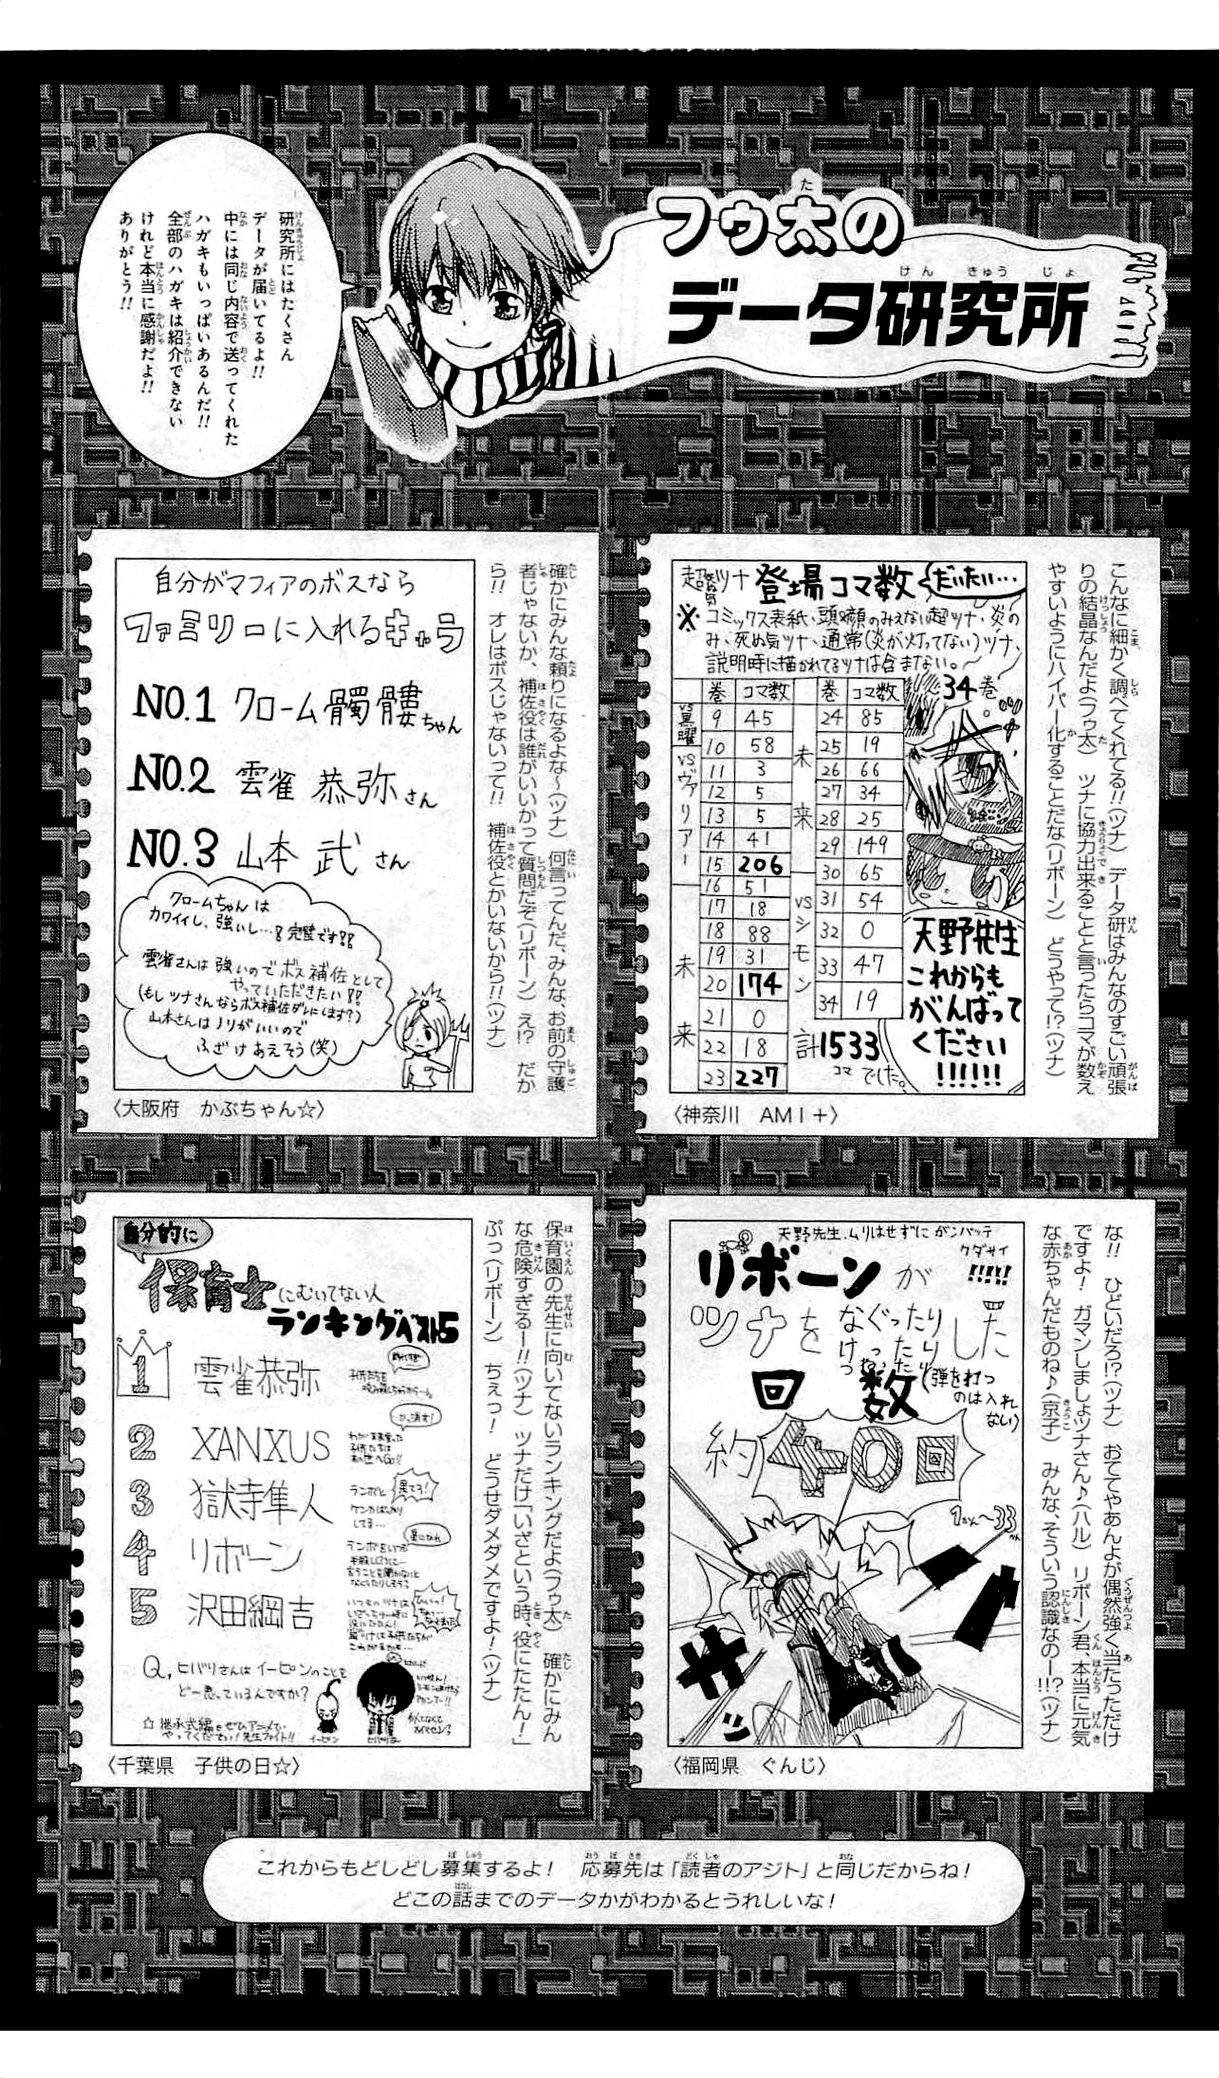 フゥ太の
データ研究所
研究所にはたくさん
データが届いてるよ!!
中には同じ内容で送ってくれた
ハガキもいっぱいあるんだ!!
全部のハガキは紹介できない
けれど本当に感謝だよ!!
ありがとう!!
こんなに細かく調べてくれてる!!(ツナ) データ研はみんなのすごい頑張
りの結晶なんだよ(フゥ太) ツナに協力出来ることと言ったらコマが数え
やすいようにハイパー化することだな(リボーン) どうやって!?(ツナ)
超死ぬ気ツナ 登場コマ数 だいたい…
※コミックス表紙、頭や顔のみえない超ツナ、炎の
み、死ぬ気ツナ、通常(炎が灯ってない)ツナ、
説明時に描かれてるツナは含まない。
巻 コマ数 巻 コマ数
vs黒曜
9 45
10 58
vsヴァリアー
11 3
12 5
13 5
14 41
15 206
未来
16 51
17 18
18 88
19 31
20 174
21 0
22 18
23 227
未来
24 85
25 19
26 66
27 34
28 25
29 149
30 65
vsシモン
31 54
32 0
33 47
34 19
計1533
コマでした。
34巻
天野先生
これからも
がんばって
ください
!!!!!!
〈神奈川 AMI+〉
確かにみんな頼りになるよな〜(ツナ) 何言ってんだ、みんな、お前の守護
者じゃないか、補佐役は誰がいいかって質問だぞ(リボーン) え!? だか
ら!! オレはボスじゃないって!! 補佐役とかいないから!!(ツナ)
自分がマフィアのボスなら
ファミリーに入れるキャラ
NO.1 クローム髑髏ちゃん
NO.2 雲雀 恭弥さん
NO.3 山本 武さん
クロームちゃんは
カワイイし、強いし…!完璧です!!
雲雀さんは強いのでボス補佐として
やっていただきたい!!
(もしツナさんならボス補佐ダレにします?)
山本さんはノリがいいので
ふざけあえそう(笑)
〈大阪府 かぶちゃん☆〉
な!! ひどいだろ!?(ツナ) おててやあんよが偶然強く当たっただけ
ですよ! ガマンしましょツナさん♪(ハル) リボーン君、本当に元気
な赤ちゃんだものね♪(京子) みんな、そういう認識なのー!!?(ツナ)
天野先生、ムリはせずにガンバッテ
クダサイ
!!!!!
リボーンが
ツナをなぐったりけったりした
回数(弾を打つ
のは入れ
ない)
約40回
〈福岡県 ぐんじ〉
保育園の先生に向いてないランキングだよ(フゥ太) 確かにみん
な危険すぎるー!!(ツナ) ツナだけ「いざという時、役にたたん!」
ぷっ(リボーン) ちぇっ! どうせダメダメですよ!(ツナ)
自分的に
保育士にむいてない人
ランキングベスト5
1 雲雀恭弥
2 XANXUS
3 獄寺隼人
4 リボーン
5 沢田綱吉
Q,ヒバリさんはイーピンのことを
どー思っているんですか?
☆継承式編もぜひアニメで
やってください!先生ファイト!!
イーピン
〈千葉県 子供の日☆〉
これからもどしどし募集するよ! 応募先は「読者のアジト」と同じだからね!
どこの話までのデータかがわかるとうれしいな!